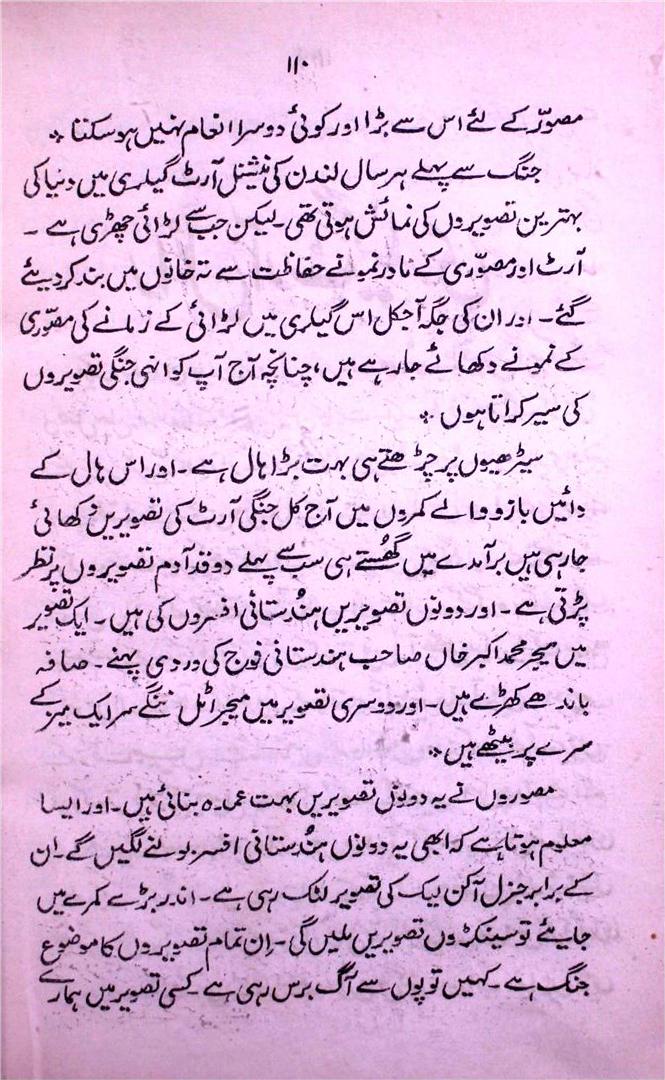 ۱۱۰
مصوّر کے لئے اس سے بڑا اور کوئی دوسرا انعام نہیں ہو سکتا ٭
جنگ سے پہلے ہر سال لندن کی نیشنل آرٹ گیلری میں دنیا کی
بہترین تصویروں کی نمائش ہوتی تھی۔ لیکن جب سے لڑائی چھڑی ہے ۔
آرٹ اور مصوّری کے نادر نمونے حفاظت سے تہ خانوں میں بند کر دیئے
گئے ۔ اور ان کی جگہ آجکل اس گیلری میں لڑائی کے زمانے کی مصوّری
کے نمونے دکھائے جا رہے ہیں، چنانچہ آج آپ کو انہی جنگی تصویروں
کی سیر کراتا ہوں ٭
سیڑھیوں پر چڑھتے ہی بہت بڑا ہال ہے ۔ اور اس ہال کے
دائیں بازو والے کمروں میں آج کل جنگی آرٹ کی تصویریں دکھائی
جا رہی ہیں برآمدے میں گھُستے ہی سب سے پہلے دو قد آدم تصویروں پر نظر
پڑتی ہے ۔ اور دونوں تصویریں ہندُستانی افسروں کی ہیں ۔ ایک تصویر
میں میجر محمد اکبر خاں صاحب ہندستانی فوج کی وردی پہنے ۔ صافہ
باندھے کھڑے ہیں ۔ اور دوسری تصویر میں میجر اٹل ننگے سر ایک میز کے
سرے پر بیٹھے ہیں ٭
مصوروں نے یہ دونوں تصویریں بہت عمدہ بنائی ہیں ۔ اور ایسا
معلوم ہوتا ہے کہ ابھی یہ دونوں ہندُستانی افسر بولنے لگیں گے ۔ ان
کے برابر جنرل آکن لیک کی تصویر لٹک رہی ہے ۔ اندر بڑے کمرے میں
جایئے تو سینکڑوں تصویریں ملیں گی ۔ اِن تمام تصویروں کا موضوع
جنگ ہے ۔ کہیں توپوں سے آگ برس رہی ہے ۔ کسی تصویر میں ہمارے